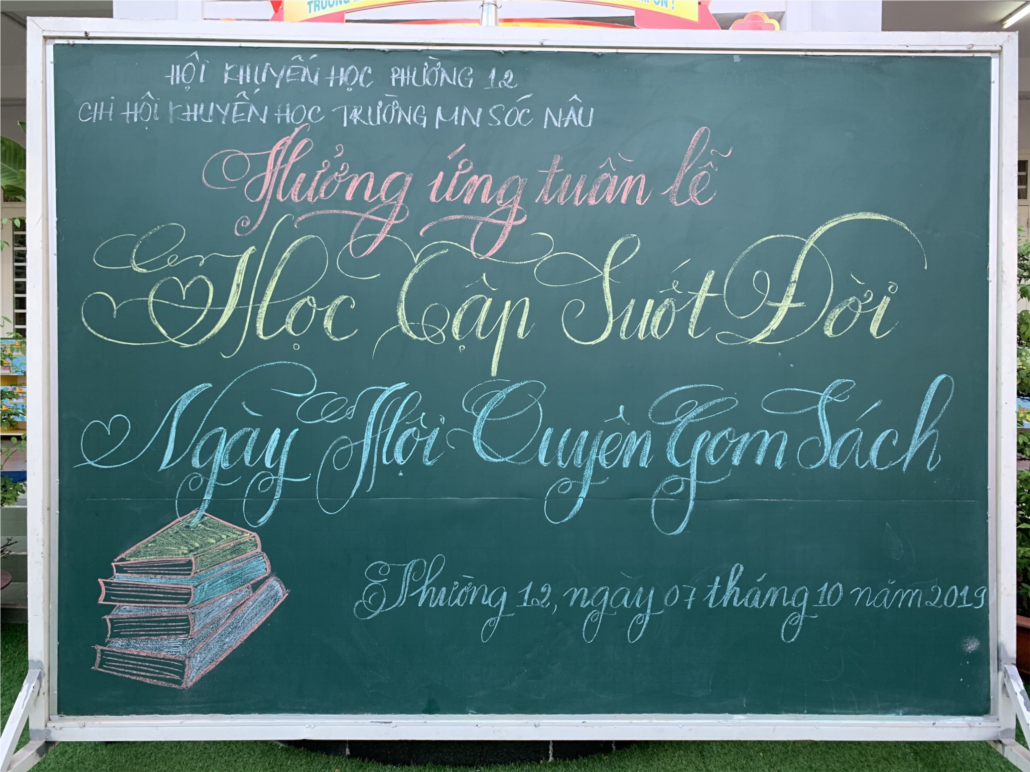 TRƯỜNG
HỘI KHUYẾN HỌC PHƯỜNG 12
CHI HỘI KHUYẾN HỌC TRƯỜNG MN SÓC NÂU
Hưởng ứng tuần lễ
Học Tập Suốt Đời
Ngày Hội Quyên Gom Sách
Phường 12, ngày 07 tháng 10 năm 2019